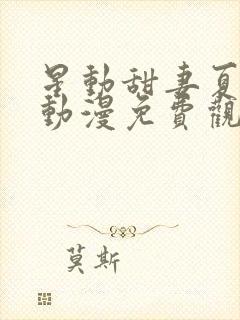 星動甜妻夏
動漫免費觀
莫斯